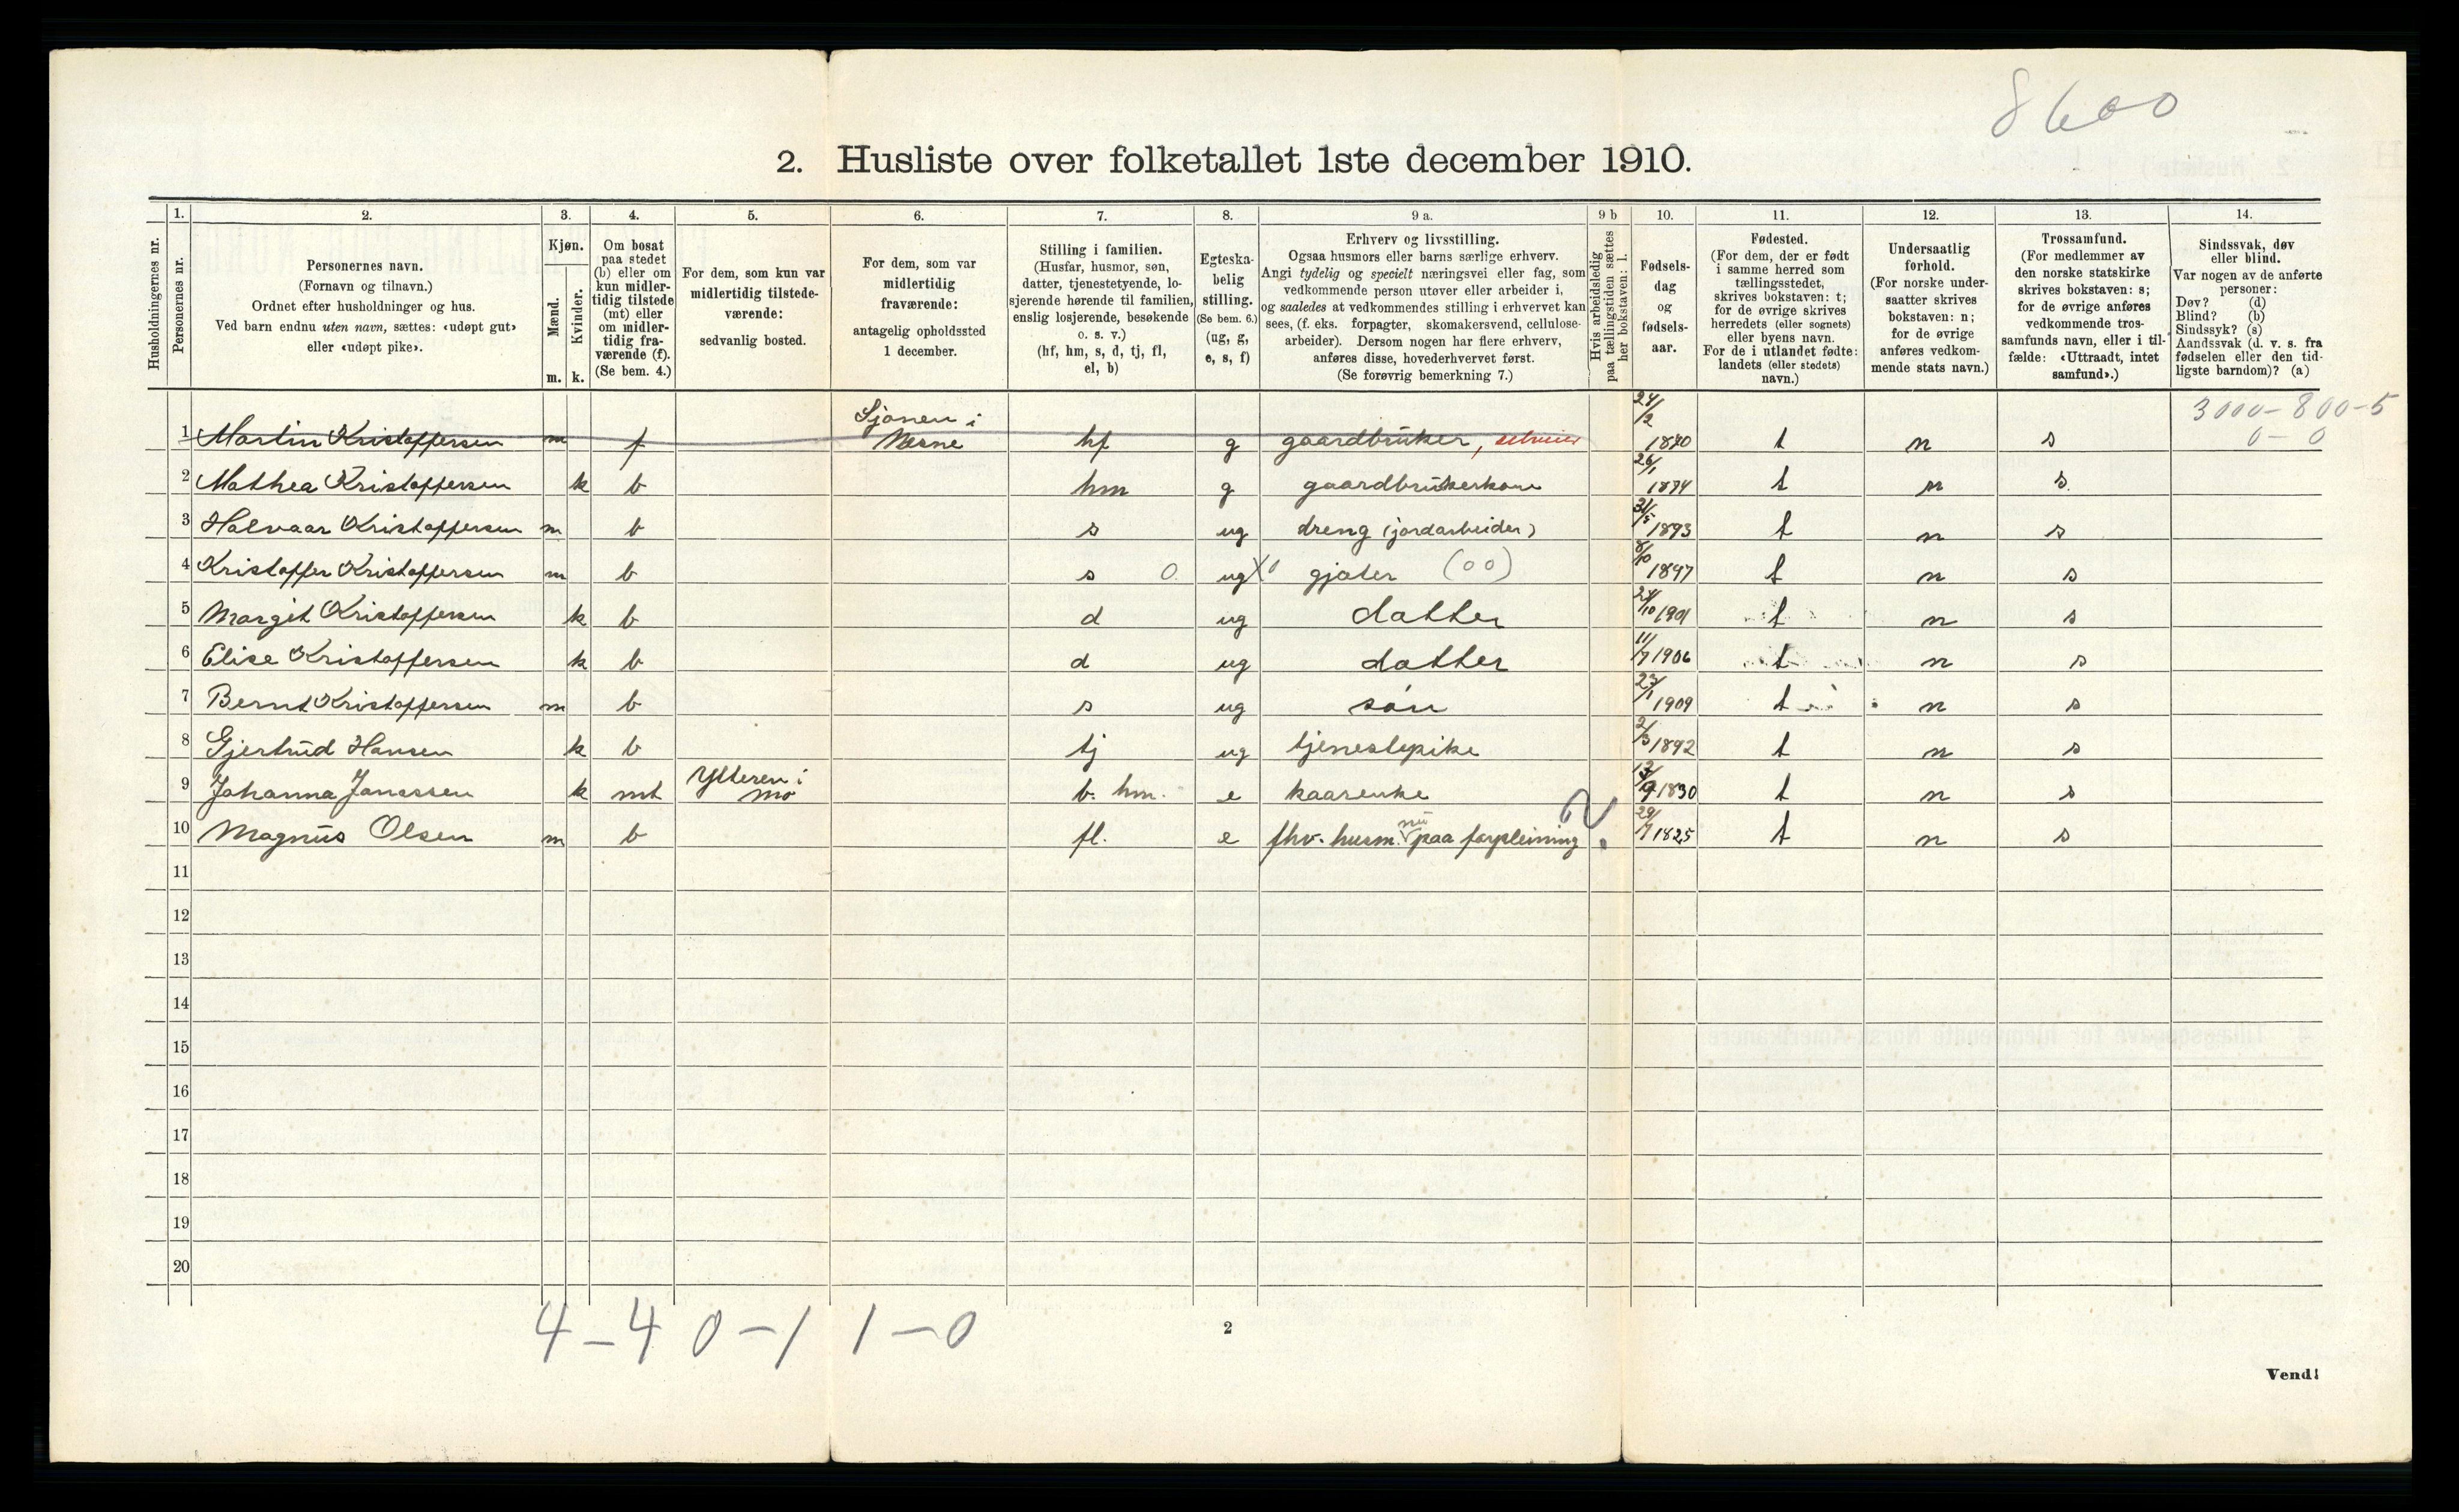 8600
2. Husliste over folketallet 1ste december 1910.
1. 2. 3. 4. 5. 6. 7. 8. 9 a. 9 b 10. 11. 12. 13. 14.
Husholdningernes nr.
Personernes nr.
Personernes navn.
(Fornavn og tilnavn.)
Ordnet efter husholdninger og hus.
Ved barn endnu uten navn, sættes: «udøpt gut»
eller «udøpt pike».
Kjøn.
Mænd.
Kvinder.
m. k.
Om bosat
paa stedet
(b) eller om
kun midler-
tidig tilstede
(mt) eller
om midler-
tidig fra-
værende (f).
(Se bem. 4.)
For dem, som kun var
midlertidig tilstede-
værende:
sedvanlig bosted.
For dem, som var
midlertidig
fraværende:
antagelig opholdssted
1 december.
Stilling i familien.
(Husfar, husmor, søn,
datter, tjenestetyende, lo-
sjerende hørende til familien,
enslig losjerende, besøkende
o. s. v.)
(hf, hm, s, d, tj, fl,
el, b)
Egteska-
belig
stilling.
(Se bem. 6.)
(ug, g,
e, s, f)
Erhverv og livsstilling.
Ogsaa husmors eller barns særlige erhverv.
Angi tydelig og specielt næringsvei eller fag, som
vedkommende person utøver eller arbeider i,
og saaledes at vedkommendes stilling i erhvervet kan
sees, (f. eks. forpagter, skomakersvend, cellulose-
arbeider). Dersom nogen har flere erhverv,
anføres disse, hovederhvervet først.
(Se forøvrig bemerkning 7.)
Hvis arbeidsledig
paa tællingstiden sættes
her bokstaven: l.
Fødsels-
dag
og
fødsels-
aar.
Fødested.
(For dem, der er født
i samme herred som
tællingsstedet,
skrives bokstaven: t;
for de øvrige skrives
herredets (eller sognets)
eller byens navn.
For de i utlandet fødte:
landets (eller stedets)
navn.)
Undersaatlig
forhold.
(For norske under-
saatter skrives
bokstaven: n;
for de øvrige
anføres vedkom-
mende stats navn.)
Trossamfund.
(For medlemmer av
den norske statskirke
skrives bokstaven: s;
for de øvrige anføres
vedkommende tros-
samfunds navn, eller i til-
fælde: «Uttraadt, intet
samfund».)
Sindssvak, døv
eller blind.
Var nogen av de anførte
personer:
Døv? (d)
Blind? (b)
Sindssyk? (s)
Aandssvak (d. v. s. fra
fødselen eller den tid-
ligste barndom)? (a)
3000-800-5
0-0
1 Martin Kristoffersen m f Sjonen i Nesne hf g gaardbruker, selveier 24/2 1870 t n s
2 Mathea Kristoffersen k b hm g gaardbrukerkone 26/1 1874 t n s
3 Halvaar Kristoffersen m b s ug dreng (jordarbeider) 31/5 1893 t n s
4 Kristoffer Kristoffersen m b s 0 ug X0 gjæter (00) 8/10 1897 t n s
5 Margit Kristoffersen k b d ug datter 24/10 1901 t n s
6 Elise Kristoffersen k b d ug datter 11/7 1906 t n s
7 Bernt Kristoffersen m b s ug søn 23/1 1909 t n s
8 Gjertrud Hansen k b tj ug tjenestepike 2/3 1892 t n s
9 Johanna Janassen k mt Ytteren i Mo b. hm. e kaarenke 1830 t n s
10 Magnus Olsen m b fl. e fhv. husm. nu paa forpleining ? 29/7 1825 t n s
11
12
13
14
15
16
17
18
19
20
4-4 0-1 1-0
2
Vend!